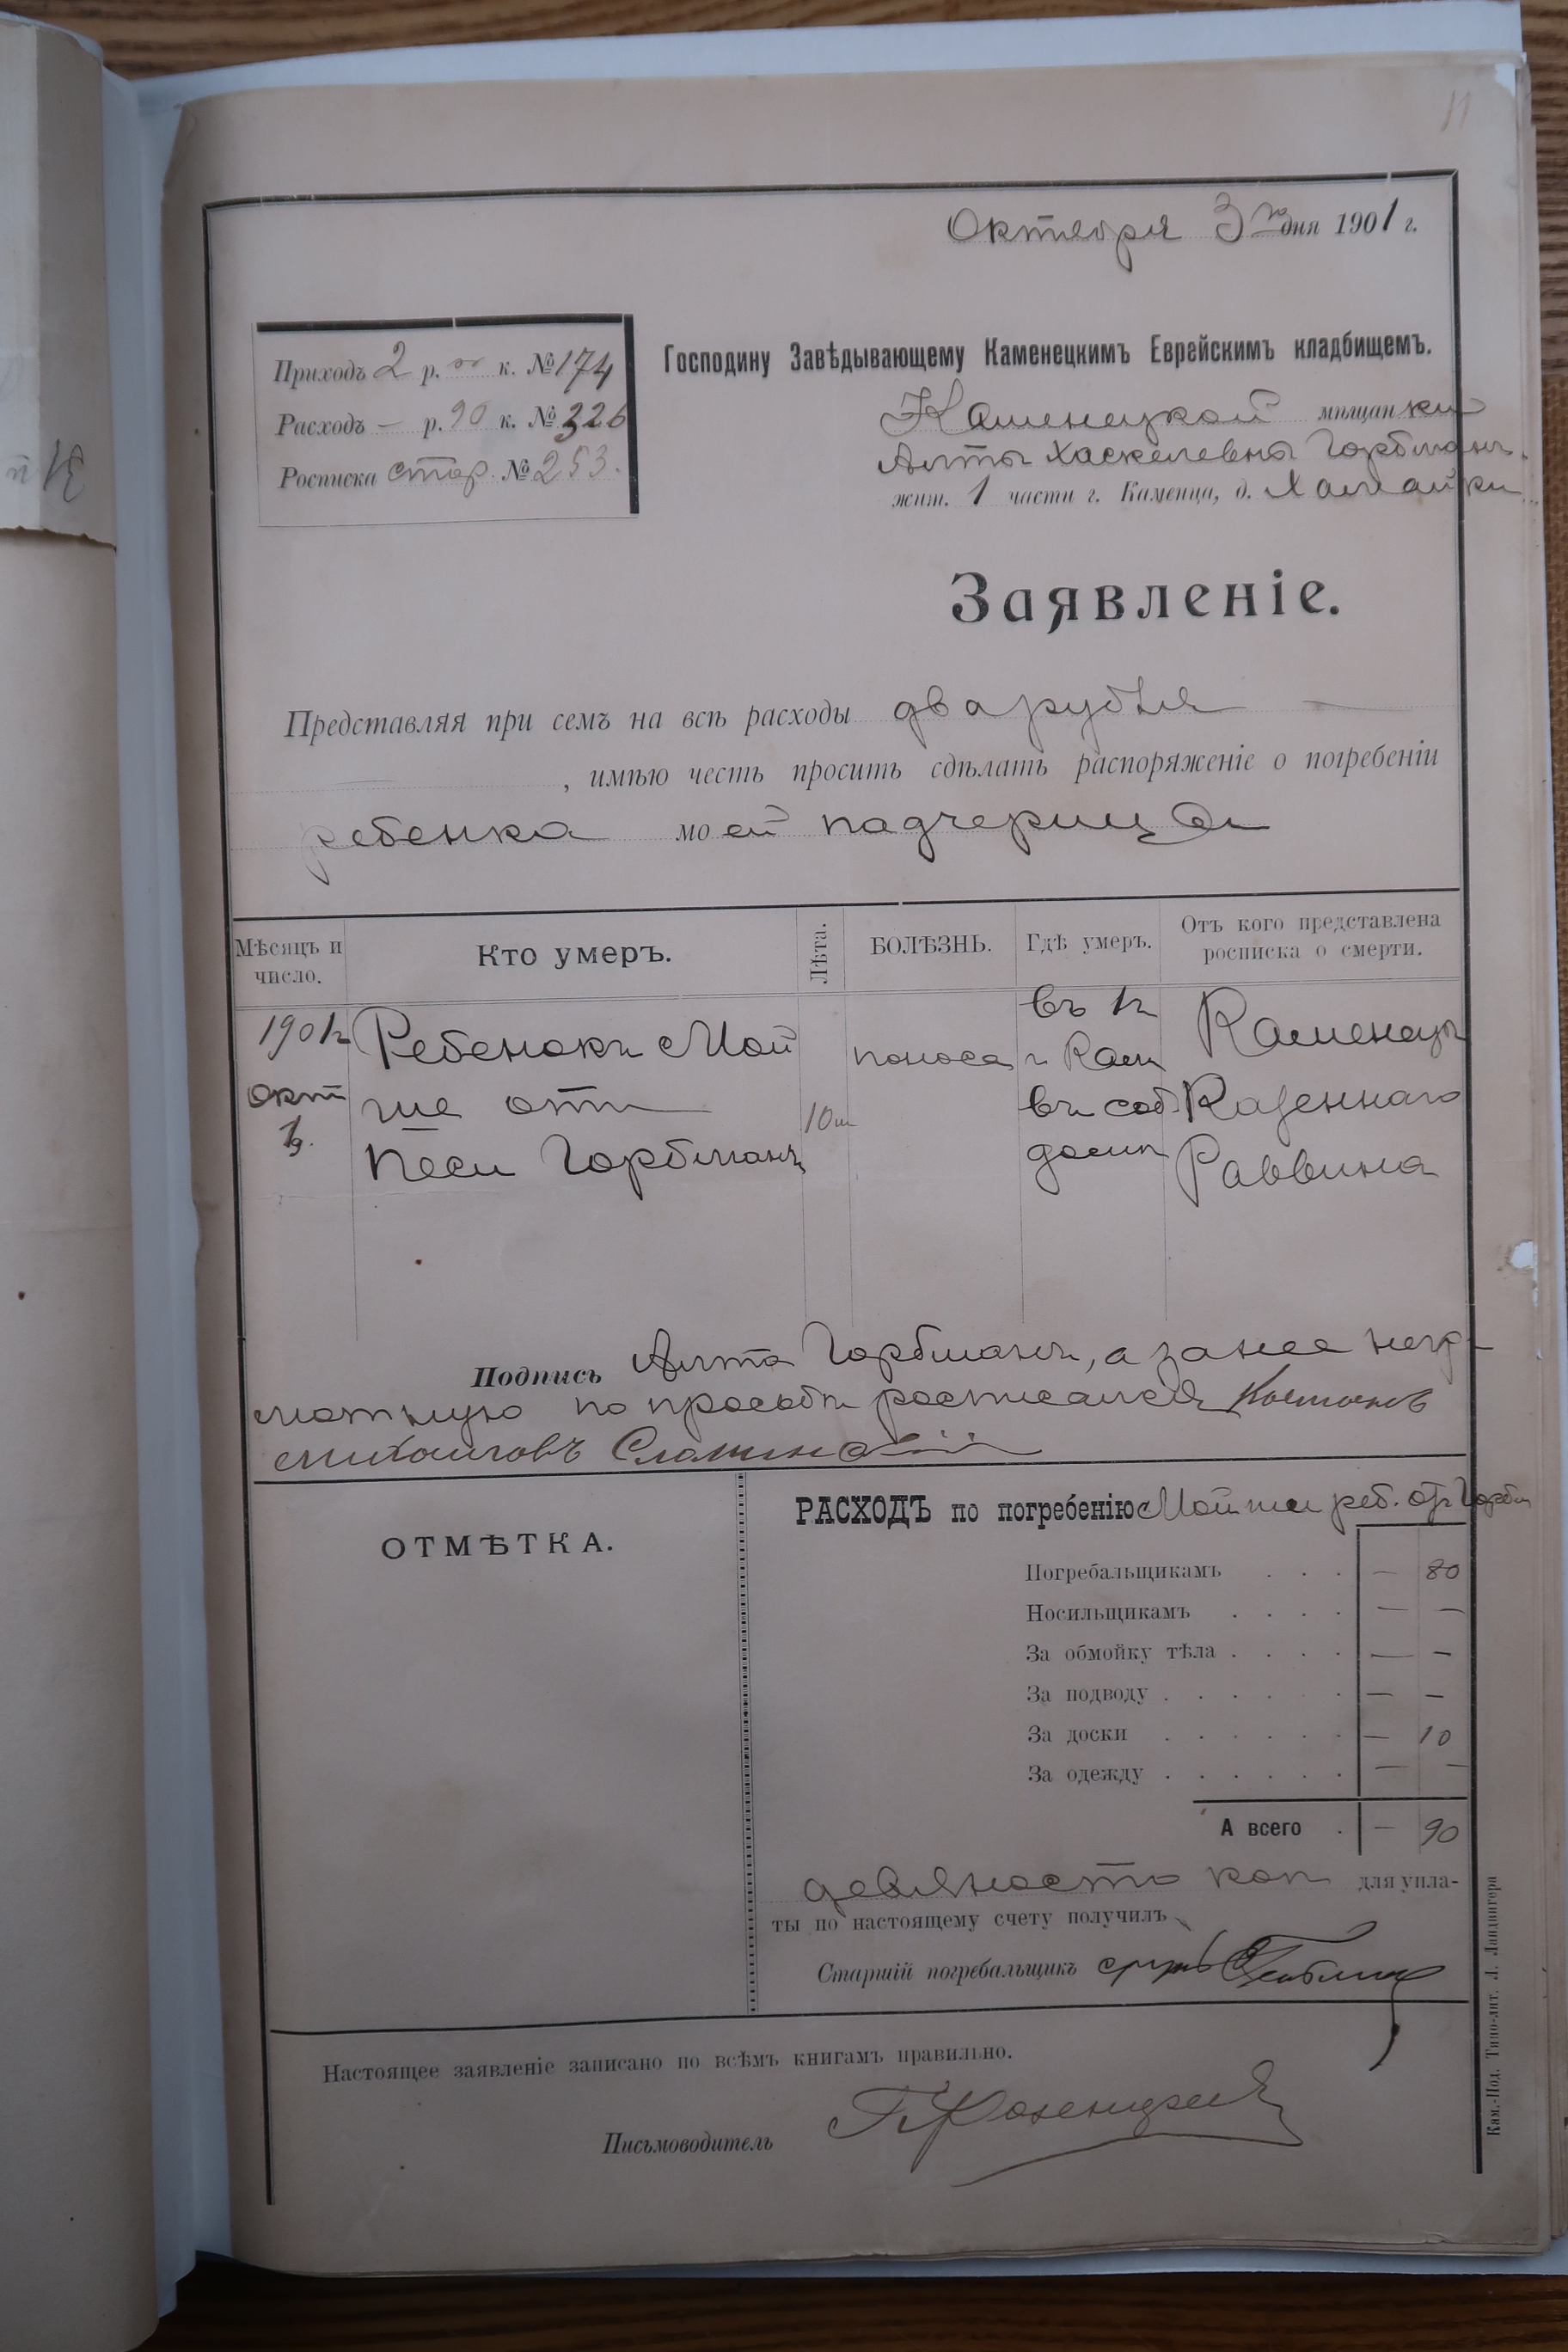 11
Октября 3го дня 1901 г.
Приходъ 2 р. 00 к. № 174
Расходъ — р. 90 к. № 326
Росписка стор. № 253.
Господину Завѣдывающему Каменецкимъ Еврейскимъ кладбищемъ.
Каменецкой мѣщанки
Алты Хаскелевны Горбманъ.
жит. 1 части г. Каменца, д.
Заявленіе.
Представляя при семъ на всѣ расходы два рубля —
, имѣю честь просить сдѣлать распоряженіе о погребеніи
ребенка моей падчерицы
Мѣсяцъ и число.
Кто умеръ.
Лѣта.
БОЛѢЗНЬ.
Гдѣ умеръ.
Отъ кого представлена росписка о смерти.
1901г
Окт
Ребенокъ Мой
ше отъ
Песи Горбманъ
10м
поноса
въ 1ч
г Кам
въ соб
домѣ
Каменецъ
Казеннаго
Раввина
Подпись Алта Горбманъ, а за нее негра
мотную по просьбѣ росписался
Михаиловъ
ОТМѢТКА.
РАСХОДЪ по погребенію Мойше реб. отъ Горбм
Погребальщикамъ . . . — 80
Носильщикамъ . . . . — —
За обмойку тѣла . . . . — —
За подводу . . . . . . — —
За доски . . . . . . — 10
За одежду . . . . . . — —
А всего . — 90
девяносто коп для упла-
ты по настоящему счету получилъ
Старшій погребальщикъ
Настоящее заявленіе записано по всѣмъ книгамъ правильно.
Письмоводитель
Кам.-Под. Типо-лит. Л. Ландвигера